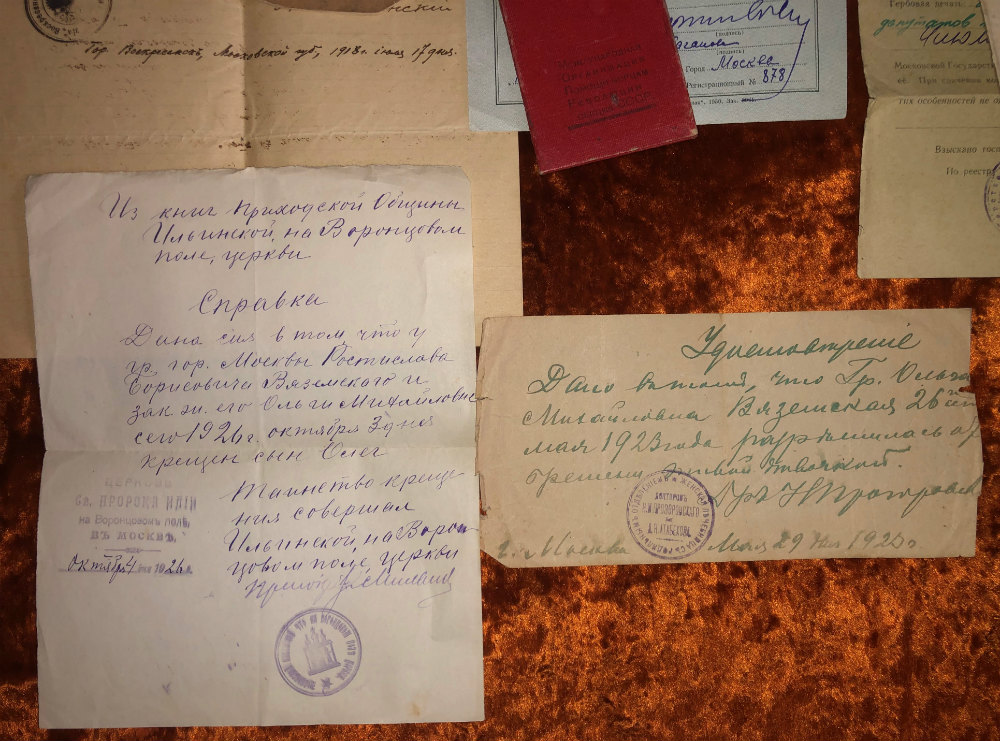 Гор. Воскресенск, Московской губ, 1918 г. июля 17 дня.
Международная
Организация
Помощи Борцам
Революции
СССР
(подпись)
(подпись)
Город Москва
Регистрационный № 878
Гербовая печать:
депутатов
Московской Государст
её. При сличении
тих особенностей не о
Взыскано гос
По реестр
Из книг приходской Общины
Ильинской, на Воронцовом
поле, церкви
Справка
Дана сия в том, что у
гр. гор. Москвы Ростислава
Борисовича Вяземского и
зак. ж. его Ольги Михайловны
сего 1926 г. октября 3 дня
крещен сын Олег
Таинство креще-
ния совершал
Ильинской, на Ворон
цовом поле, церкви
ЦЕРКОВЬ
Св. ПРОРОКА ИЛІИ
на Воронцовомъ полѣ,
ВЪ МОСКВѢ,
октября 4 дня 1926 г.
Удостоверение
Дано в том, что Гр. Ольга
Михайловна Вяземская 26го
мая 1923 года разрешилась от
бремени живой девочкой.
ДОКТОРОВЪ
г. Москва Мая 29 дня 1923 г.